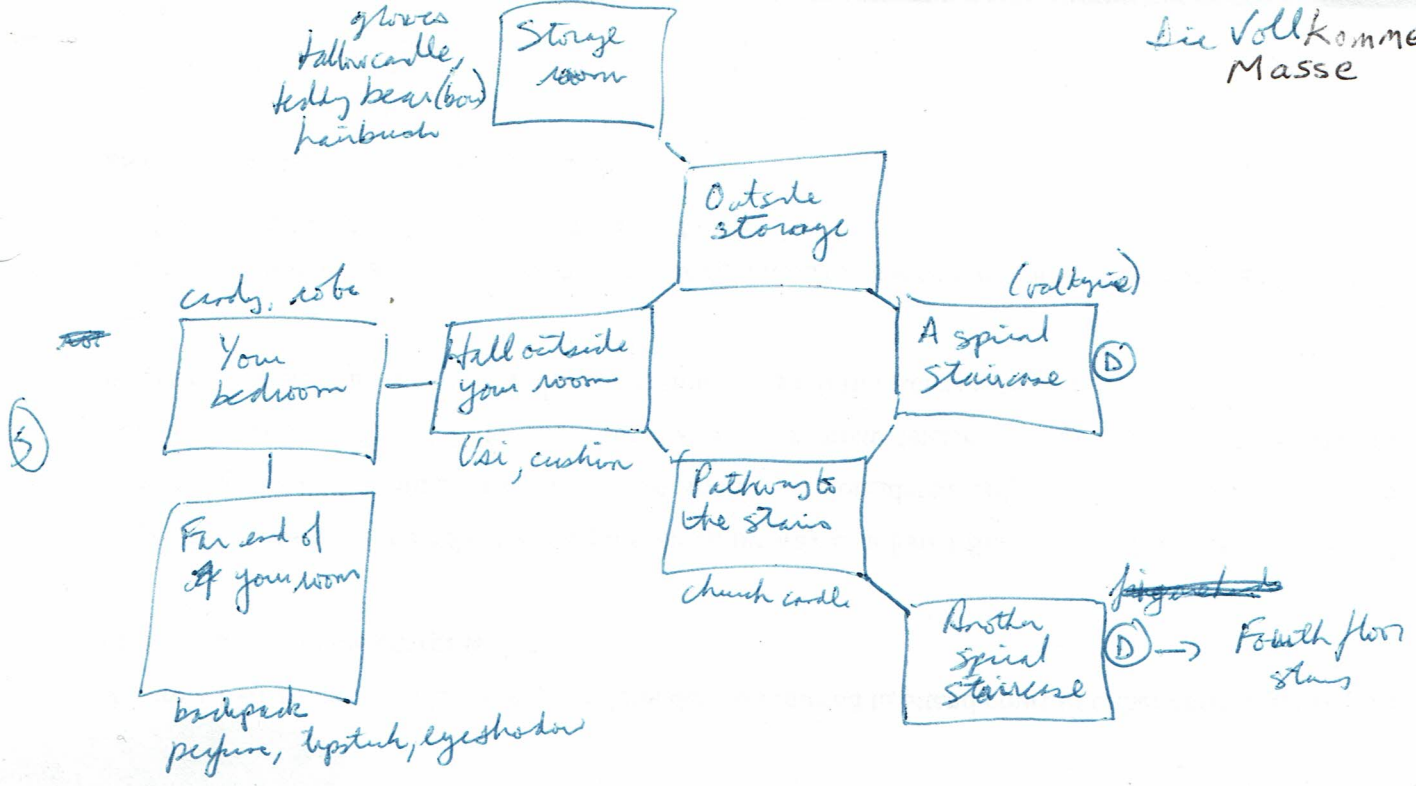 gloves
tallow candle,
teddy bear (bow)
hairbrush
Storage
room
Die Vollkomme
Masse
Outside
storage
candy, robe
Your
bedroom
Hall outside
your room
Usi, cushion
(valkyrie)
A spiral
staircase
D
5
Pathway to
the stairs
church candle
Far end of
your room
backpack
perfume, lipstick, eyeshadow
Another
spiral
staircase
D → Fourth floor
stairs